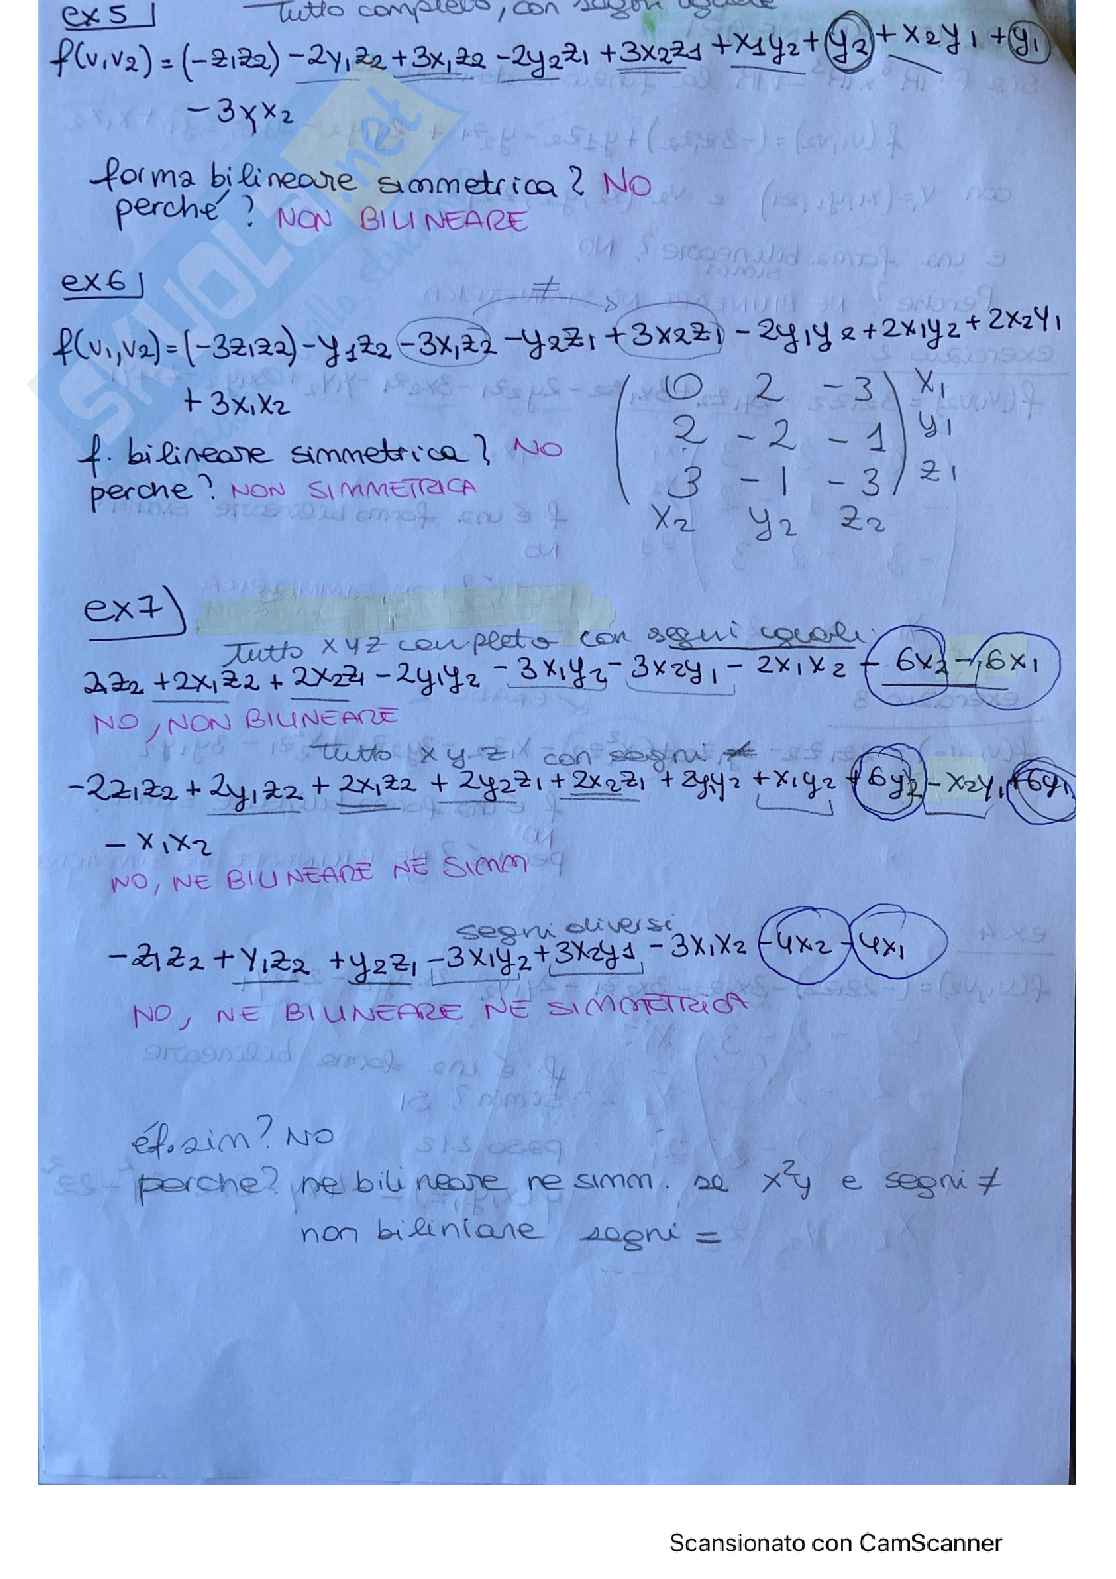 ex 5
Tutto completo, con segni uguale
f(v1v2) = (-z1z2) - 2y1z2 + 3x1z2 - 2y2z1 + 3x2z1 + x1y2 + y2 + x2y1 + y1
- 3x x2
forma bilineare simmetrica? NO
perché? NON BILINEARE
ex 6
≠
f(v1,v2) = (-3z1z2) - y1z2 - 3x1z2 - y2z1 + 3x2z1 - 2y1y2 + 2x1y2 + 2x2y1
+ 3x1x2
0 2 -3 x1
2 -2 -1 y1
3 -1 -3 z1
x2 y2 z2
f. bilineare simmetrica? NO
perche? NON SIMMETRICA
ex 7)
Tutto xyz completo con segni uguali.
2z2 + 2x1z2 + 2x2z1 - 2y1y2 - 3x1y2 - 3x2y1 - 2x1x2 - 6x2 - 6x1
NO, NON BILINEARE
tutto x y z con segni ≠
-2z1z2 + 2y1z2 + 2x1z2 + 2y2z1 + 2x2z1 + 2y1y2 + x1y2 + 6y2 - x2y1 + 6y1
- x1x2
NO, NE BILINEARE NE SIMM
segni diversi
-z1z2 + y1z2 + y2z1 - 3x1y2 + 3x2y1 - 3x1x2 - 4x2 - 4x1
NO, NE BILINEARE NE SIMMETRICA
é f. sim? NO
perche? ne bilineare ne simm. se x²y e segni ≠
non biliniare segni =
SKUOLA.net
Scansionato con CamScanner